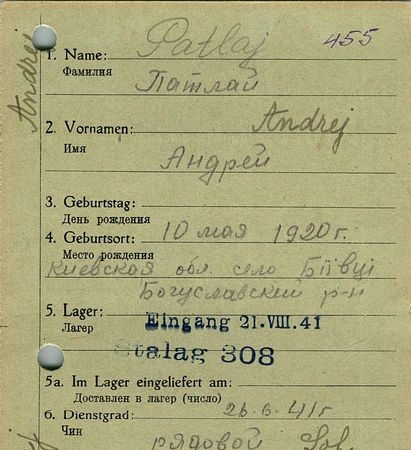 Andrej
1. Name: Patlaj 455
Фамилия Патлай
2. Vornamen: Andrej
Имя Андрей
3. Geburtstag:
День рождения
4. Geburtsort: 10 мая 1920 г.
Место рождения
Киевская обл. село Бiївцi
Богуславский р-н
5. Lager: Eingang 21.VIII.41
Лагерь
Stalag 308
5a. Im Lager eingeliefert am:
Доставлен в лагерь (число)
6. Dienstgrad: 26.6.41 г
Чин рядовой Sol.